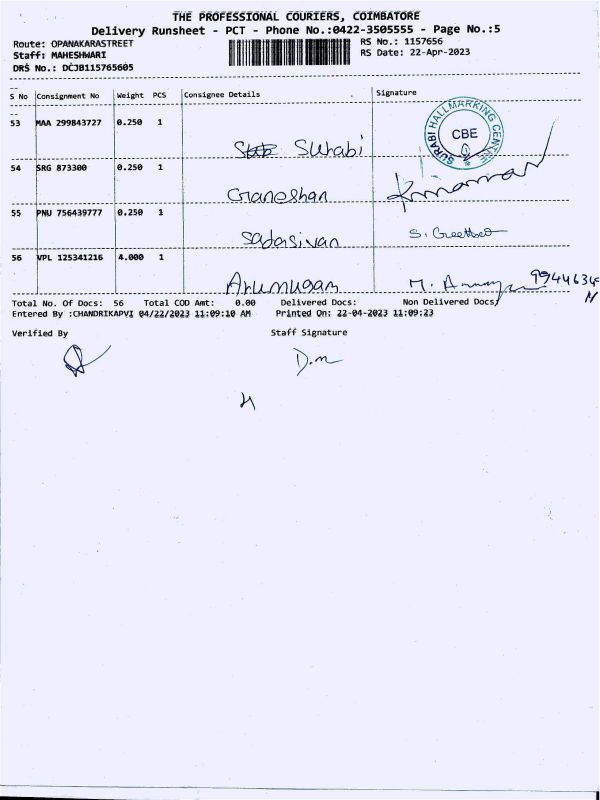 THE PROFESSIONAL COURIERS, COIMBATORE
Delivery Runsheet - PCT - Phone No.:0422-3505555 - Page No.:5
Route: OPANAKARASTREET
RS No.: 1157656
Staff: MAHESHWARI
RS Date: 22-Apr-2023
DRS No.: DCJB115765605
S No Consignment No Weight PCS Consignee Details Signature
53 MAA 299843727 0.250 1
Surabi
SURABI HALLMARKING CENTRE
CBE
54 SRG 873300 0.250 1
Ganeshan
55 PNU 756439777 0.250 1
Sadasivan
56 VPL 125341216 4.000 1
Arumugam
Total No. Of Docs: 56 Total COD Amt: 0.00 Delivered Docs: Non Delivered Docs;
Entered By :CHANDRIKAPVI 04/22/2023 11:09:10 AM Printed On: 22-04-2023 11:09:23
Verified By Staff Signature
D.m